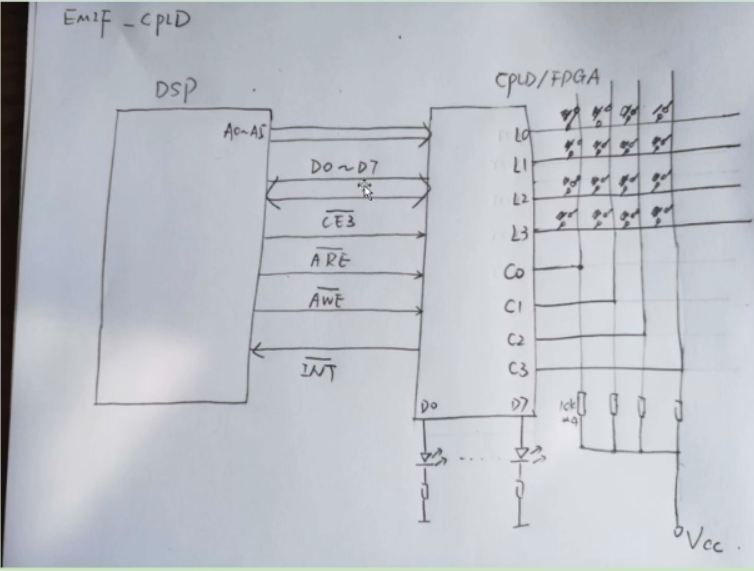 EMIF_CPLD
DSP
CPLD/FPGA
A0~A5
D0~D7
CE3
ARE
AWE
INT
L0
L1
L2
L3
C0
C1
C2
C3
D0
D7
10k
×4
Vcc